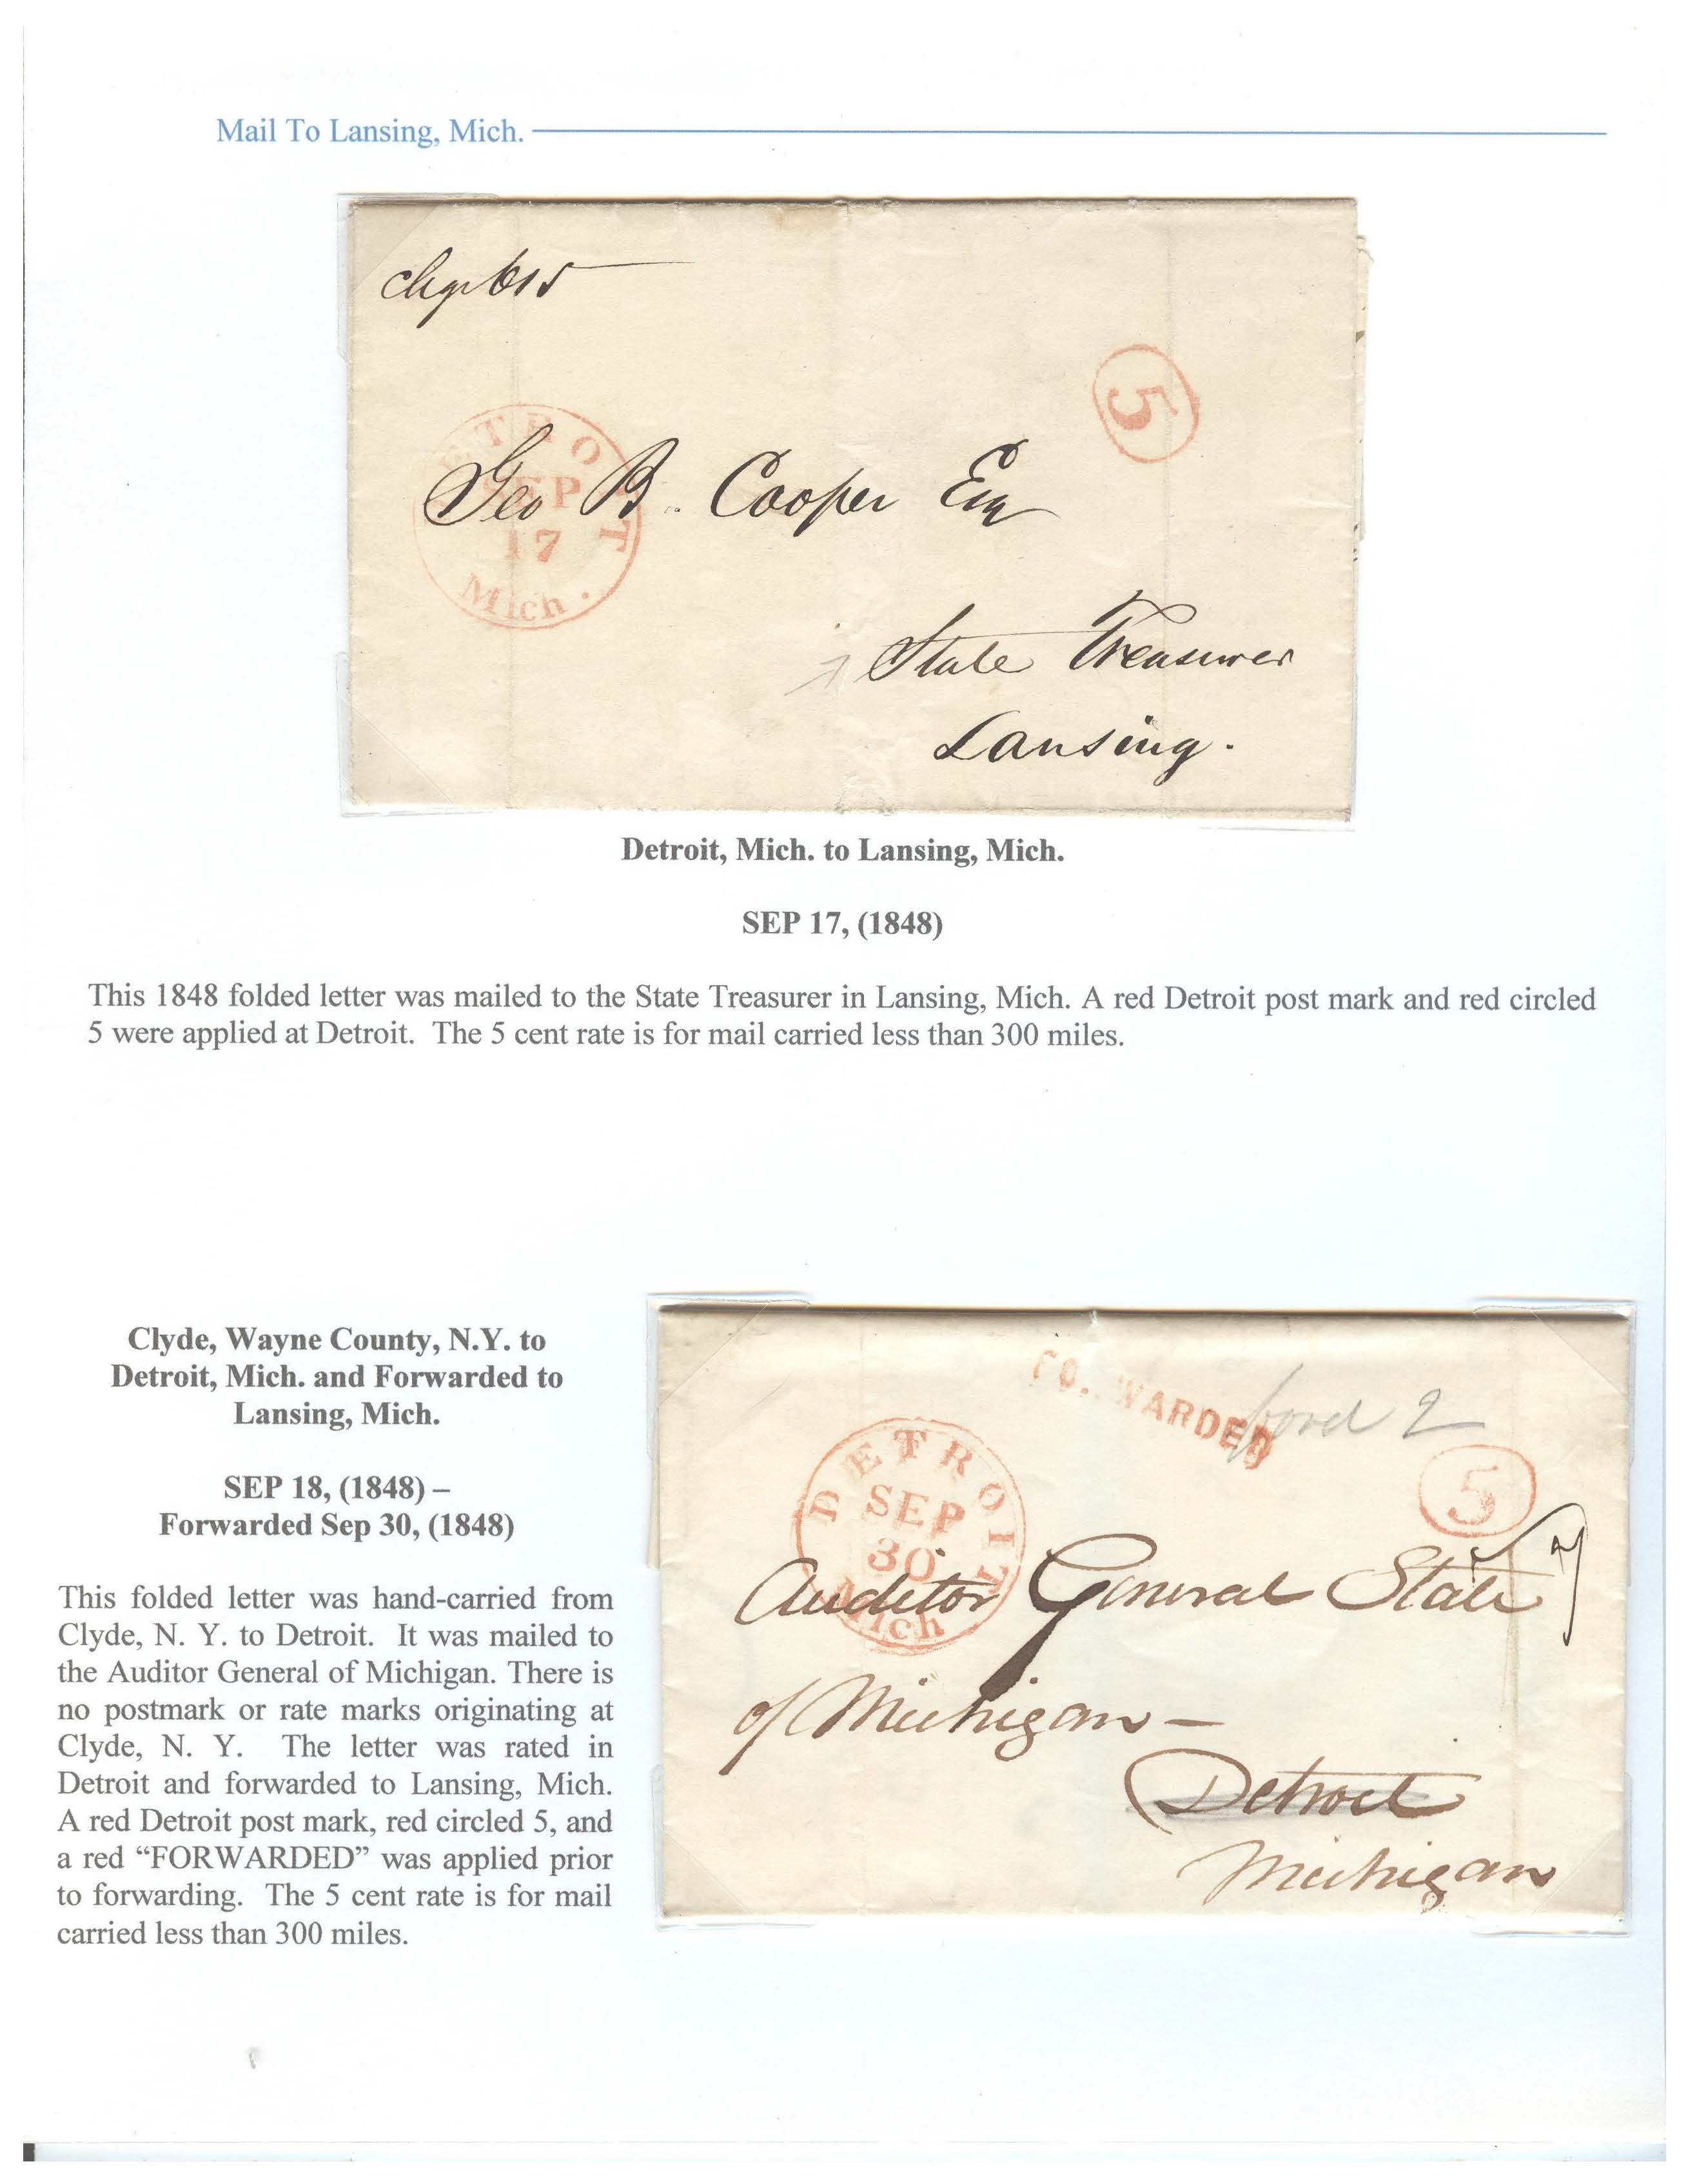 Mail To Lansing, Mich.
chg 615
5
DETROIT
SEP
17
Mich.
Geo B. Cooper Esq
State Treasurer
Lansing.
Detroit, Mich. to Lansing, Mich.
SEP 17, (1848)
This 1848 folded letter was mailed to the State Treasurer in Lansing, Mich. A red Detroit post mark and red circled
5 were applied at Detroit. The 5 cent rate is for mail carried less than 300 miles.
Clyde, Wayne County, N.Y. to
Detroit, Mich. and Forwarded to
Lansing, Mich.
SEP 18, (1848) –
Forwarded Sep 30, (1848)
This folded letter was hand-carried from
Clyde, N. Y. to Detroit. It was mailed to
the Auditor General of Michigan. There is
no postmark or rate marks originating at
Clyde, N. Y. The letter was rated in
Detroit and forwarded to Lansing, Mich.
A red Detroit post mark, red circled 5, and
a red “FORWARDED” was applied prior
to forwarding. The 5 cent rate is for mail
carried less than 300 miles.
FORWARDED
2
5
DETROIT
SEP
30
Mich
Auditor General State
of Michigan –
Detroit
Michigan